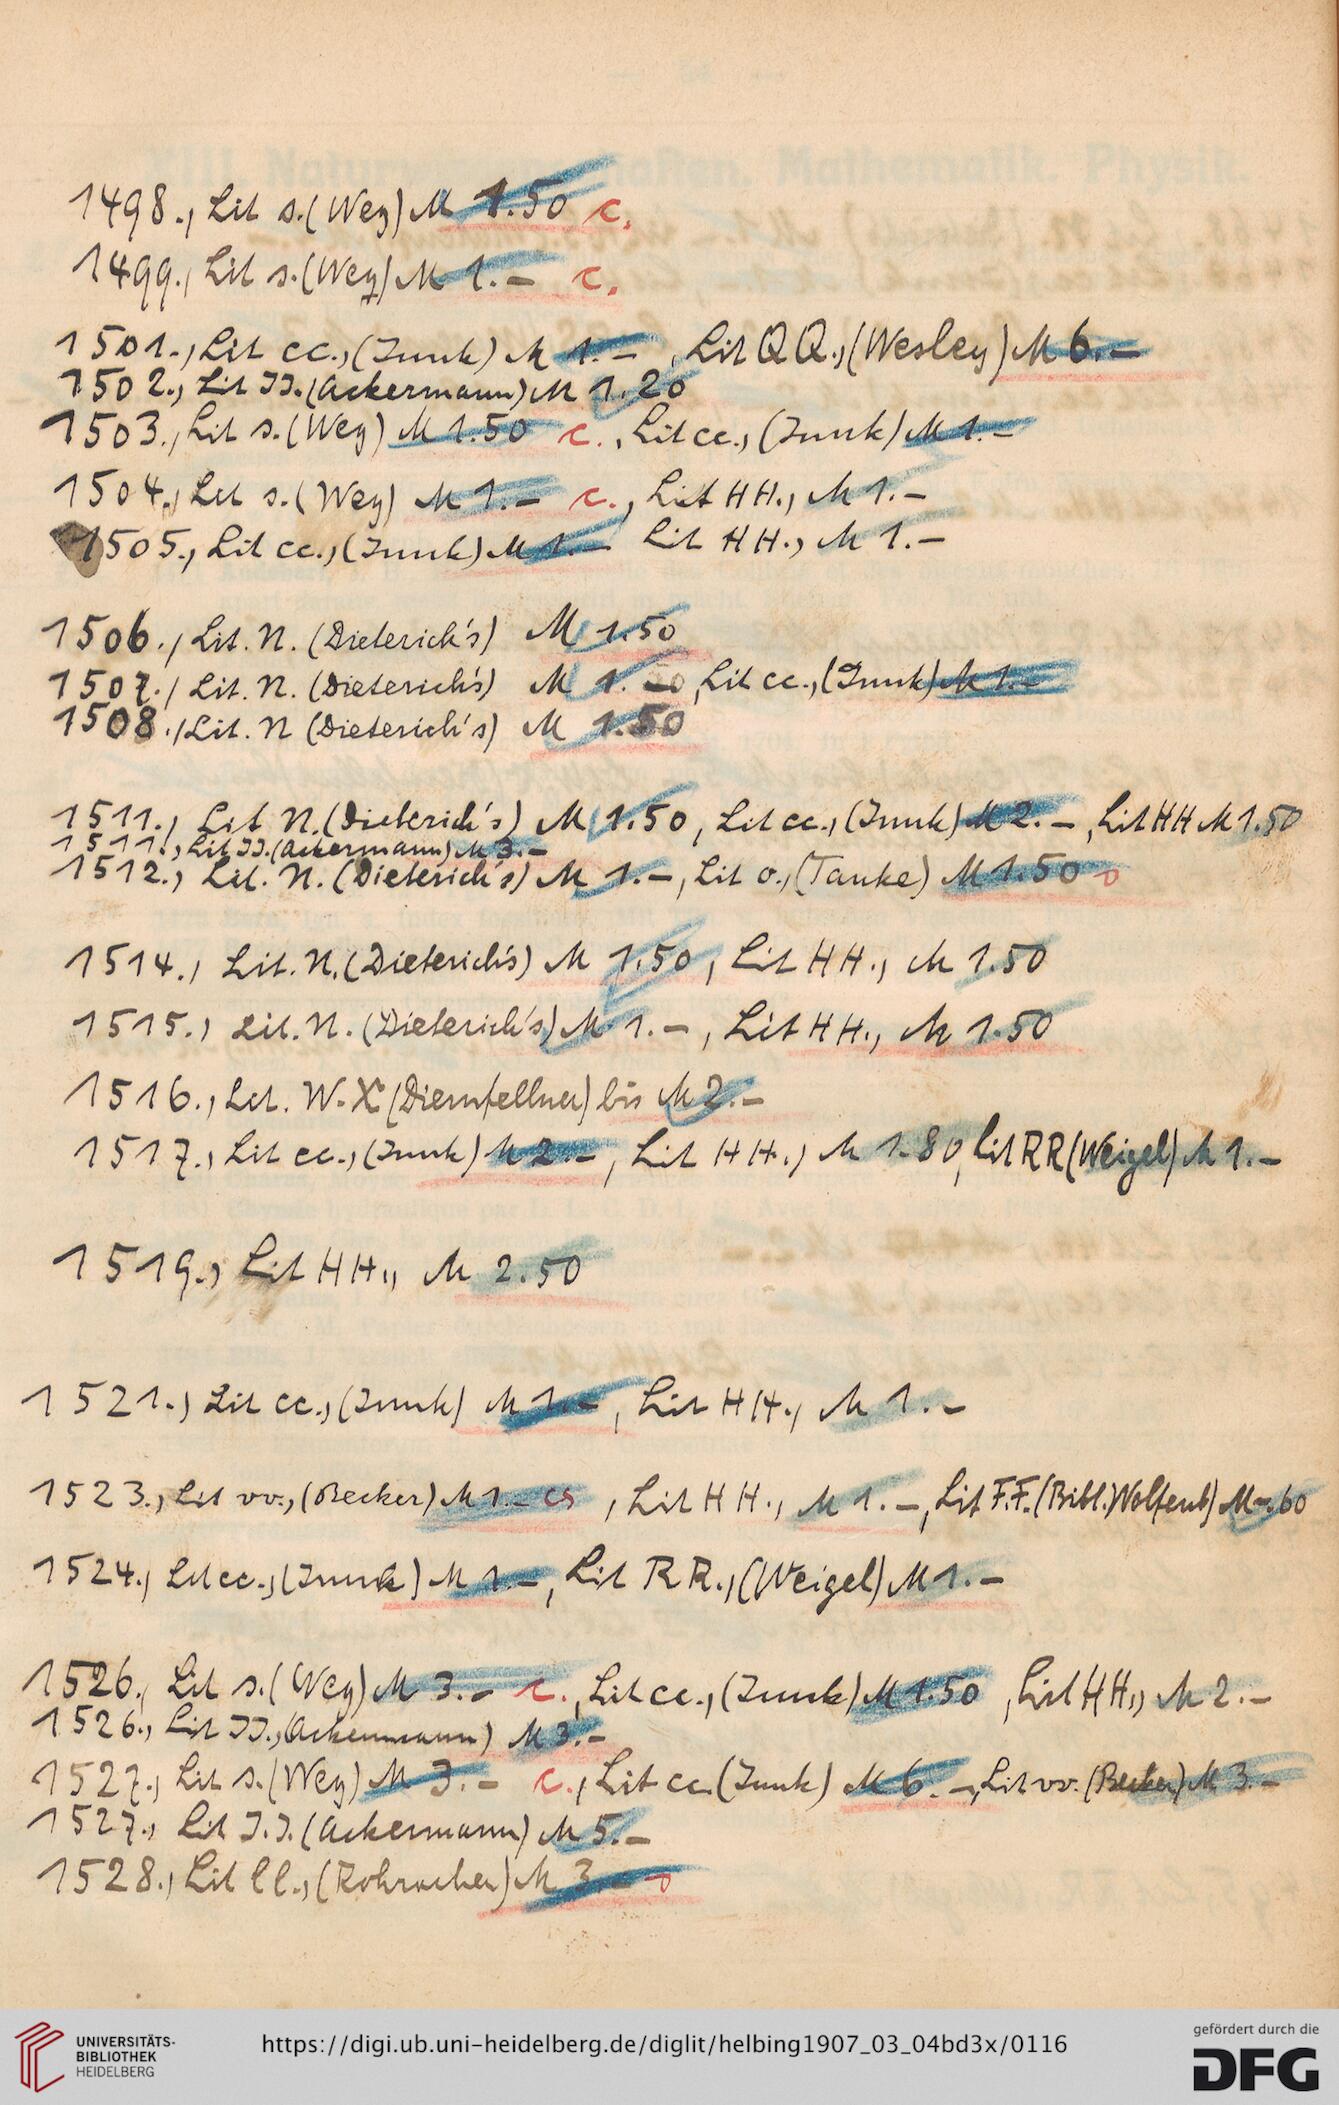 1498., Lit s. (Weg) M 1.50 c.
1499., Lit s. (Weg) M 1.– c.
1501., Lit cc., (Junk) M 1.– , Lit QQ., (Wesley) M 6.–
1502., Lit JJ. (Ackermann) M 1.20
1503., Lit s. (Weg) M 1.50 c. , Lit cc., (Junk) M 1.–
1504., Lit s. (Weg) M 1.– c. , Lit HH., M 1.–
1505., Lit cc., (Junk) M 1.– Lit HH., M 1.–
1506., Lit. N. (Dieterich's) M 1.50
1507., Lit. N. (Dieterich's) M 1.– , Lit cc., (Junk) M 1.–
1508., Lit. N (Dieterich's) M 1.50
1511., Lit N. (Dieterich's) M 1.50, Lit cc., (Junk) M 2.–, Lit HH M 1.50
1511., Lit JJ. (Ackermann) M 3.–
1512., Lit. N. (Dieterich's) M 1.–, Lit o., (Tauke) M 1.50 o
1514., Lit. N. (Dieterich's) M 1.50, Lit HH., M 1.50
1515., Lit. N. (Dieterich's) M 1.–, Lit HH., M 1.50
1516., Lit. W. X (Diernfellner) bis M 2.–
1517., Lit cc., (Junk) M 2.–, Lit HH., M 1.80, Lit RR (Weigel) M 1.–
1519., Lit HH., M 2.50
1521., Lit cc., (Junk) M 1.–, Lit HH., M 1.–
1523., Lit vv., (Becker) M 1.– , Lit HH., M 1.–, Lit F.F. (Bibl. Wolfenb) M –.60
1524., Lit cc., (Junk) M 1.–, Lit RR., (Weigel) M 1.–
1526., Lit s. (Weg) M 3.– c., Lit cc., (Junk) M 1.50 , Lit HH., M 2.–
1526., Lit JJ., (Ackermann) M 3.–
1527., Lit s. (Weg) M 3.– c., Lit cc. (Junk) M 6.–, Lit vv. (Becker) M 3.–
1527., Lit J.J. (Ackermann) M 5.–
1528., Lit ll., (Rohracher) M 3.– o
UNIVERSITÄTS-
BIBLIOTHEK
HEIDELBERG
https://digi.ub.uni-heidelberg.de/diglit/helbing1907_03_04bd3x/0116
gefördert durch die
DFG